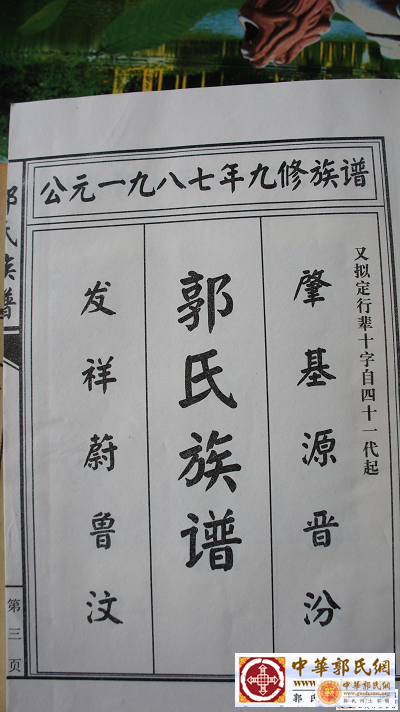 公元一九八七年九修族谱
又拟定行辈十字自四十一代起
肇基源晋汾
郭氏族谱
发祥蔚鲁汶
郭氏族谱
第三页
中華郭氏網
www.
中華郭氏網